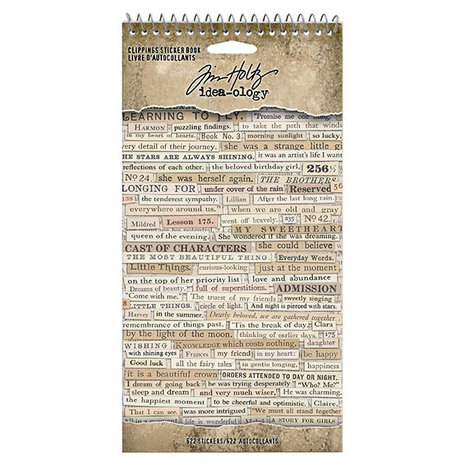 CLIPPINGS STICKER BOOK
LIVRE D'AUTOCOLLANTS
Tim Holtz
idea-ology
LEARNING TO FLY. "Promise me one
HARMON puzzling findings. to take the path that winds
in my heart of hearts. Book No. 3 morning sunlight so lucky.
very detail of their journey. she was a strange little g
THE STARS ARE ALWAYS SHINING. it was an artist's life I want
reflections of each other. the beloved birthday girl. 256½
No 24. she was herself again. THE BROTHER
LONGING FOR under cover of the rain Reserved
the tenderest sympathy. Lilian After the last long rain,
everywhere around us." when we are old and gray
Mildred Lesson 175. went off bravely. 235 No 42.
MY SWEETHEART
queen of the evening. She wondered if she was dreaming.
CAST OF CHARACTERS she could believe
THE MOST BEAUTIFUL THING. Everyday Words.
Little Things. curious-looking just at the moment
on the top of her priority list love and abundance
Dreams of beauty, full of superstitions. ADMISSION
"Come with me." The truest of my friends sweetly singing
LITTLE THINGS. circle of light. And night is pierced with stars.
Harvey in the summer. Dearly beloved, we are gathered together
remembrance of things past. 'Tis the break of day. Clara
by the light of the moon. thinking of earlier days. 175
WISHING KNOWLEDGE which costs nothing, daughter
with shining eyes Frances my friend in my heart: be happy
Good luck all the fairy tales in gentle longing. happiness
it is a beautiful crown ORDERS ATTENDED TO DAY OR NIGHT.
I dream of going back he was trying desperately "Who? Me!"
sleep and dream and very much wiser, He was charming.
the happiest moment to be cheerful and optimistic. Claire
That I can see. was more intrigued "We must all stand together
622 STICKERS/622 AUTOCOLLANTS